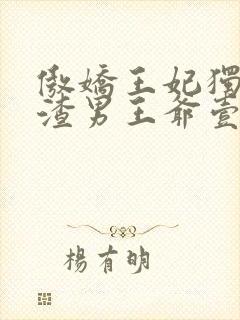 傲嬌王妃獨
渣男王爺壹
楊有明